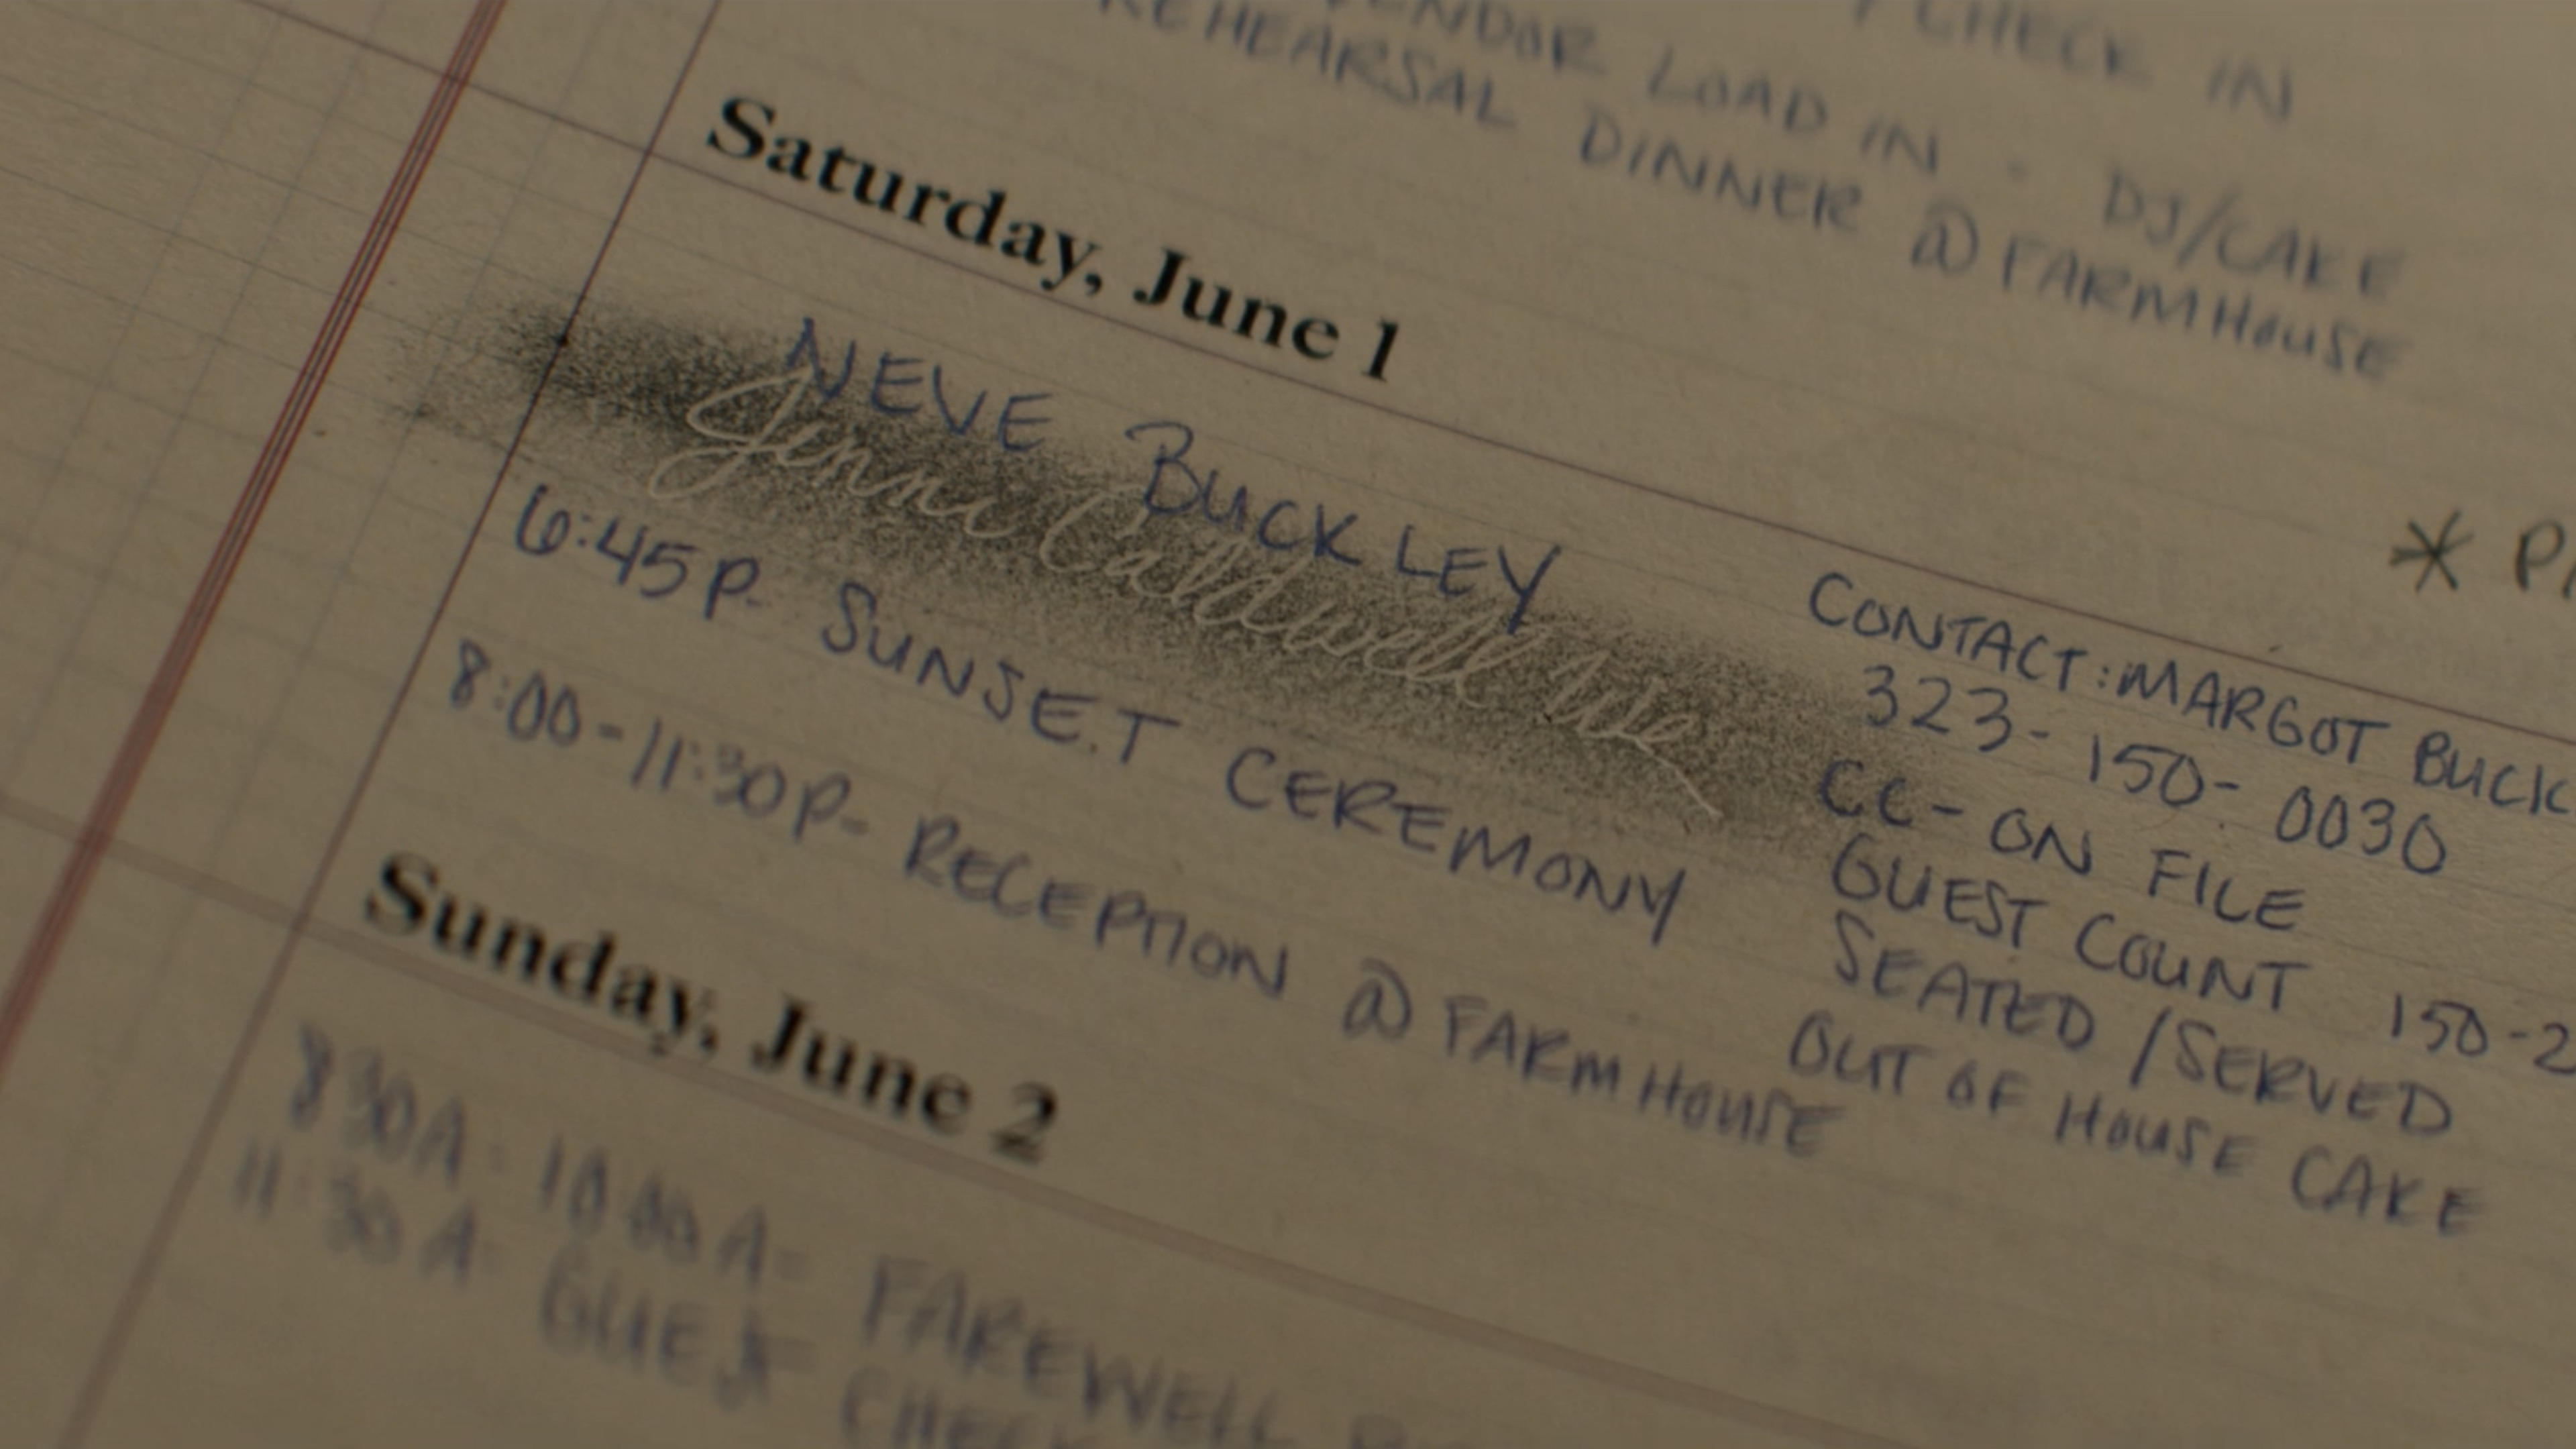 CHECK IN
VENDOR LOAD IN - DJ/CAKE
REHEARSAL DINNER @ FARMHOUSE
Saturday, June 1
NEVE BUCKLEY
Jenni Caldwell We
6:45P- SUNSET CEREMONY
8:00-11:30P- RECEPTION @ FARMHOUSE
* P
CONTACT: MARGOT BUCK
323-150-0030
CC- ON FILE
GUEST COUNT 150-2
SEATED/SERVED
OUT OF HOUSE CAKE
Sunday, June 2
8:30A- 10:00A- FAREWELL
11:30A- GUEST CHECK